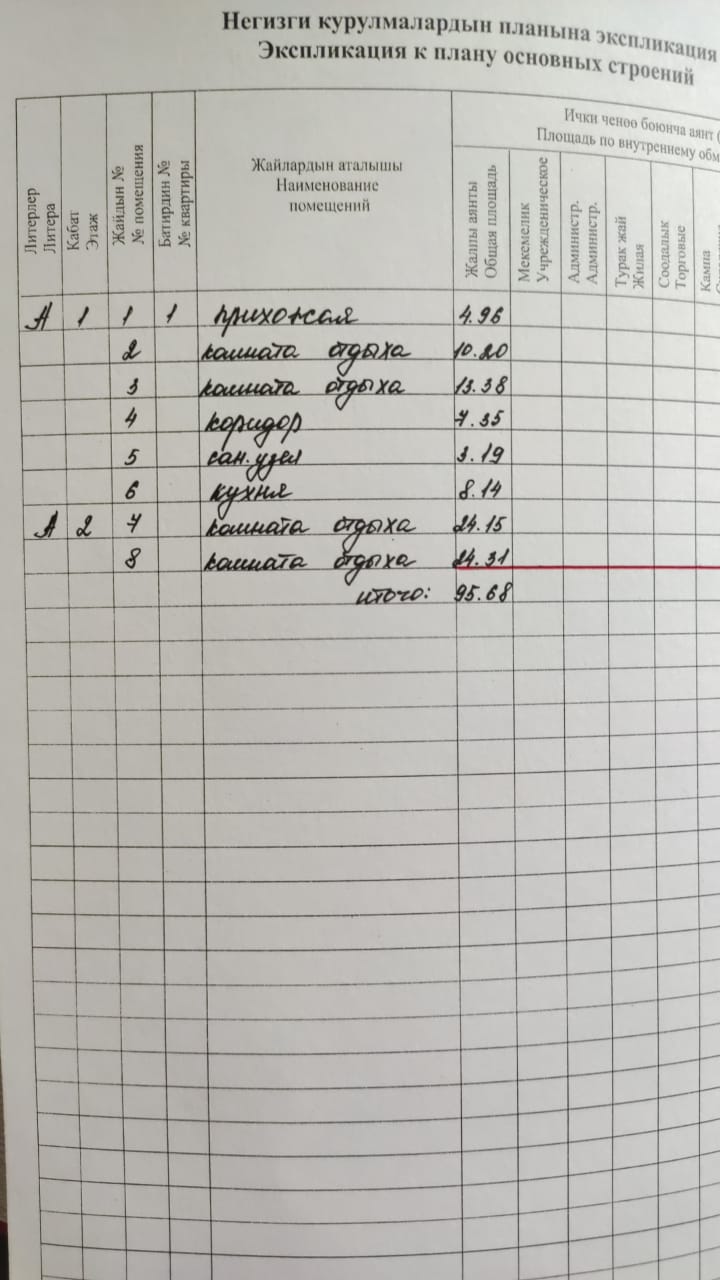 Негизги курулмалардын планына экспликация
Экспликация к плану основных строений
Литерлер
Литера
Кабат
Этаж
Жайдын №
№ помещения
Батирдин №
№ квартиры
Жайлардын аталышы
Наименование
помещений
Ички ченөө боюнча аянт (
Площадь по внутреннему обм
Жалпы аянты
Общая площадь
Мекемелик
Учрежденическое
Администр.
Администр.
Турак жай
Жилая
Соодалык
Торговые
Кампа
А 1 1 1 прихожая 4.96
2 комната отдыха 10.20
3 комната отдыха 13.38
4 коридор 7.35
5 сан. узел 3.19
6 кухня 8.14
А 2 7 комната отдыха 24.15
8 комната отдыха 24.31
итого: 95.68